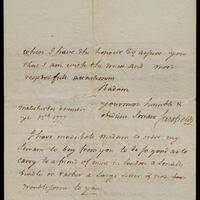 when I have the honour to assure you
that I am with the most
respectfull
Madam
your most humble &
obedient Servant
I have made bold madam to order my
Servant to beg from you to be so good as to
carry to a friend of mine in London a small
bundle or rather a large letter if not
troublesome to you